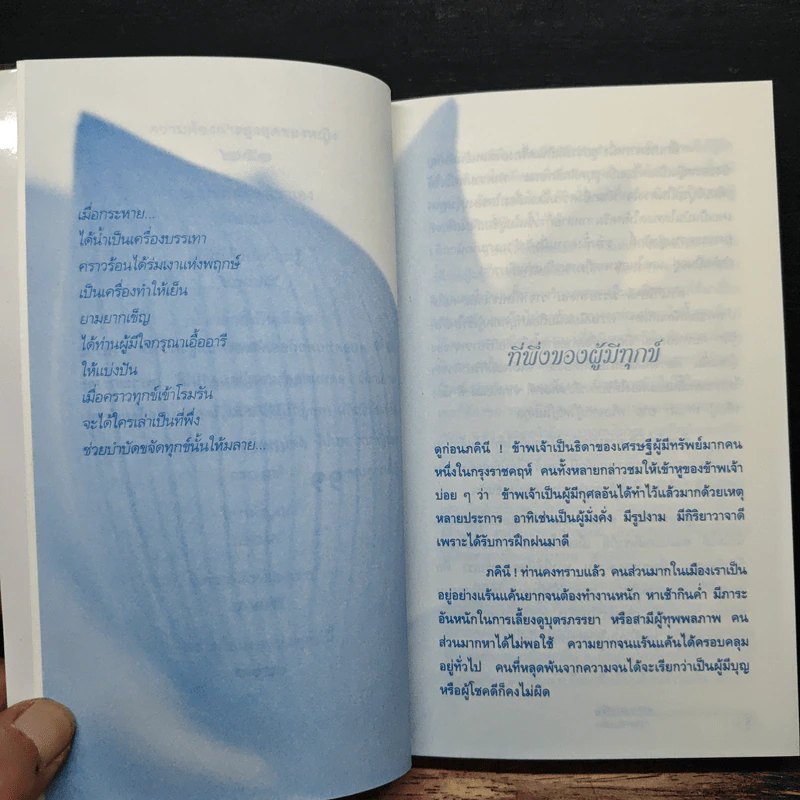 เมื่อกระหาย...
ได้น้ำเป็นเครื่องบรรเทา
คราวร้อนได้ร่มเงาแห่งพฤกษ์
เป็นเครื่องทำให้เย็น
ยามยากเช็ญ
ได้ท่านผู้มีใจกรุณาเอื้ออารี
ให้แบ่งปัน
เมื่อคราวทุกข์เข้าโรมรัน
จะได้ใครเล่าเป็นที่พึ่ง
ช่วยบำบัดขจัดทุกข์นั้นให้มลาย...
ที่พึ่งของผู้มีทุกข์
ดูก่อนภคินี ! ข้าพเจ้าเป็นธิดาของเศรษฐีผู้มีทรัพย์มากคน
หนึ่งในกรุงราชคฤห์ คนทั้งหลายกล่าวชมให้เข้าหูของข้าพเจ้า
บ่อย ๆ ว่า ข้าพเจ้าเป็นผู้มีกุศลอันได้ทำไว้แล้วมากด้วยเหตุ
หลายประการ อาทิเช่นเป็นผู้มั่งคั่ง มีรูปงาม มีกิริยาวาจาดี
เพราะได้รับการฝึกฝนมาดี
ภคินี ! ท่านคงทราบแล้ว คนส่วนมากในเมืองเราเป็น
อยู่อย่างแร้นแค้นยากจนต้องทำงานหนัก หาเช้ากินค่ำ มีภาระ
อันหนักในการเลี้ยงดูบุตรภรรยา หรือสามีผู้ทุพพลภาพ คน
ส่วนมากหาได้ไม่พอใช้ ความยากจนแร้นแค้นได้ครอบคลุม
อยู่ทั่วไป คนที่หลุดพ้นจากความจนได้จะเรียกว่าเป็นผู้มีบุญ
หรือผู้โชคดีก็คงไม่ผิด